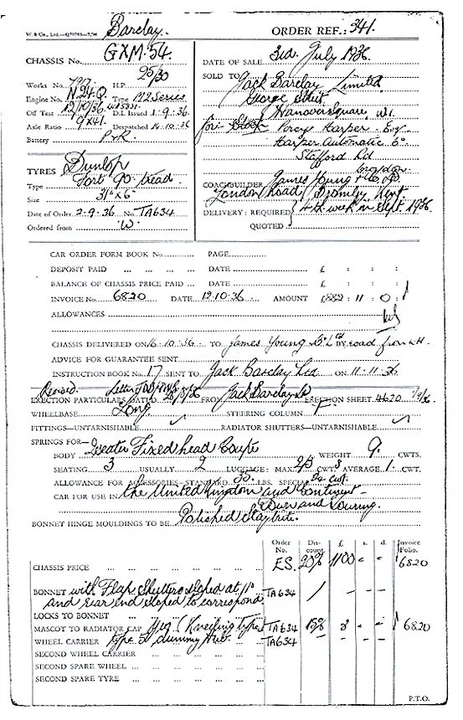 Barclay.
W. & Co., Ltd.
ORDER REF.: 341.
CHASSIS No. GXM·54.
DATE OF SALE 3rd. July 1936.
Works No. H.P. 25/30
SOLD TO Jack Barclay Limited
Engine No. N24Q. Type
George Street
Off Test 12/10/36 D.I. Issued 1.9.36
Hanover Square, W1.
Axle Ratio 9x41. Despatched 10.36
for Stock Percy Harper. Esq.
Battery P&R.
Harper Automatic Co
Stafford Rd
Croydon
TYRES Dunlop
COACHBUILDER James Young & Co Ltd
Type Fort 90 tread.
London Road, Bromley, Kent
Size
DELIVERY: REQUIRED 4th week in Sept. 1936.
Date of Order 2-9-36 No. TA634
QUOTED
Ordered from "W".
CAR ORDER FORM BOOK No. PAGE
DEPOSIT PAID DATE £ : :
BALANCE OF CHASSIS PRICE PAID DATE £ : :
INVOICE No. 6820 DATE 19·10·36 AMOUNT £882 : 11 : 0
ALLOWANCES
CHASSIS DELIVERED ON 16-10-36 TO James Young & Co Ltd BY road from LH.
ADVICE FOR GUARANTEE SENT
INSTRUCTION BOOK No. 17 SENT TO Jack Barclay Ltd ON 11-11-36
Revised Letter
ERECTION PARTICULARS DATED FROM Jack Barclay Ld ERECTION SHEET 4620
WHEELBASE Long STEERING COLUMN F.
FITTINGS—UNTARNISHABLE RADIATOR SHUTTERS—UNTARNISHABLE
SPRINGS FOR—
BODY 2 seater Fixed head Coupe WEIGHT 9. CWTS.
SEATING 3 USUALLY 2 LUGGAGE: MAX. CWTS AVERAGE 1. CWT.
ALLOWANCE FOR ACCESSORIES—STANDARD LBS. SPECIAL
CAR FOR USE IN the United Kingdom and Continent—
Town and Touring.
BONNET HINGE MOULDINGS TO BE Polished Staybrite.
Order No. Discount £ s. d. Invoice Folio.
CHASSIS PRICE ES. 20% 1100 - - 6820
BONNET with Flap Shutters sloped at 11°
and rear end sloped to correspond. TA634
LOCKS TO BONNET
MASCOT TO RADIATOR CAP Yes (Kneeling type) TA634 15% 3 - - 6820
WHEEL CARRIER type & dummy hub. TA634
SECOND WHEEL CARRIER
SECOND SPARE WHEEL
SECOND SPARE TYRE
P.T.O.